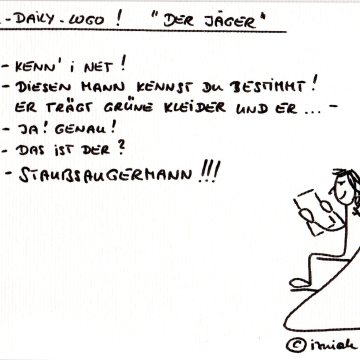 -DAILY-LOGO! "DER JÄGER"
- KENN' i NET!
- DIESEN MANN KENNST DU BESTIMMT!
ER TRÄGT GRÜNE KLEIDER UND ER ... -
- JA! GENAU!
- DAS IST DER?
- STAUßSAUGERMANN!!!
© irmiah